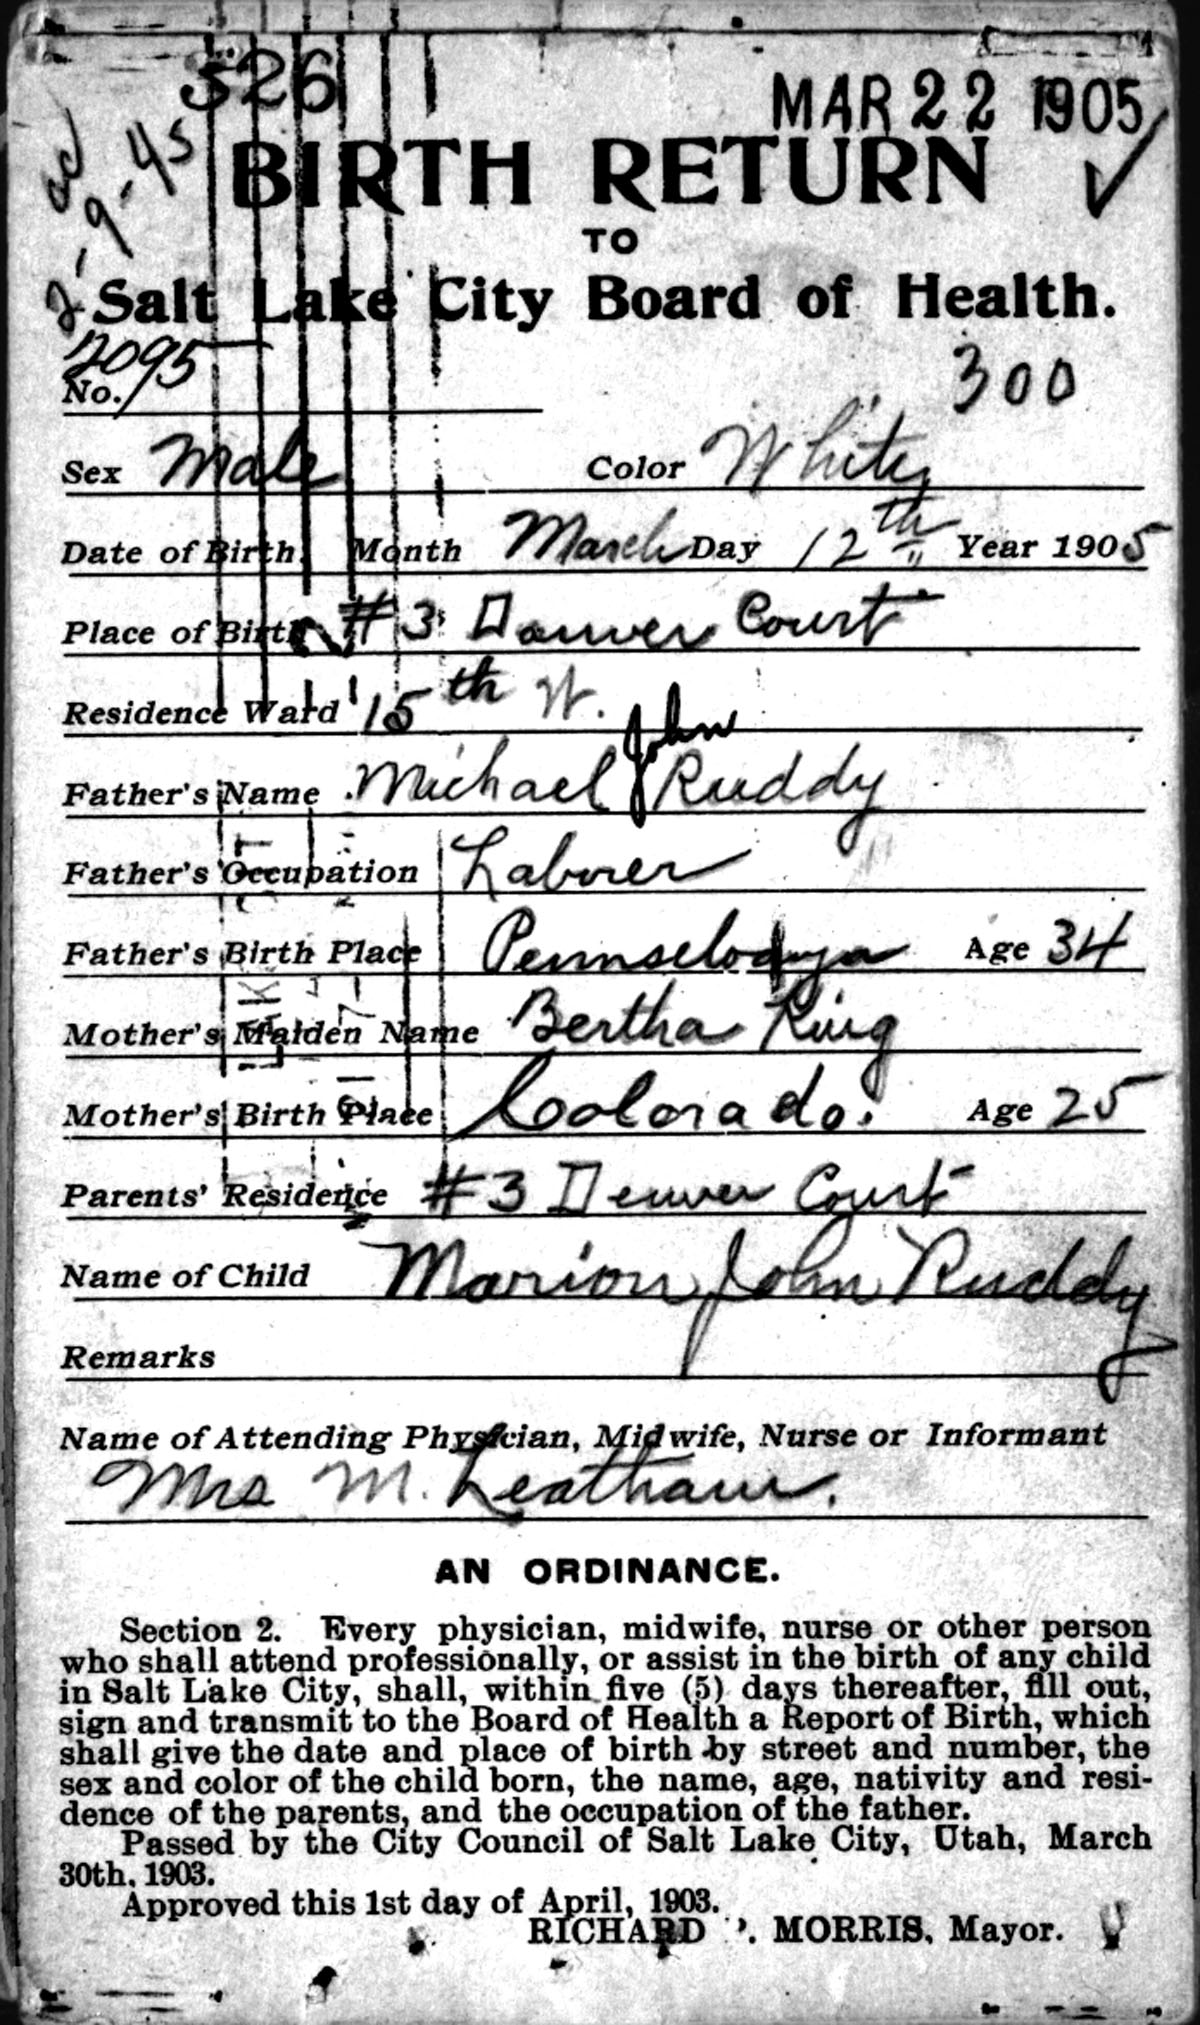 526
MAR 22 1905
2-9-45
BIRTH RETURN
TO
Salt Lake City Board of Health.
No. 2095
300
Sex Male Color White
Date of Birth. Month March Day 12th Year 1905
Place of Birth #3 Denver Court
Residence Ward 15th W.
John
Father's Name Michael Ruddy
Father's Occupation Laborer
Father's Birth Place Age 34
Mother's Maiden Name Bertha King
Mother's Birth Place Colorado. Age 25
Parents' Residence #3 Denver Court
Name of Child Marion John Ruddy
Remarks
Name of Attending Physician, Midwife, Nurse or Informant
Mrs M. Leatham.
AN ORDINANCE.
Section 2. Every physician, midwife, nurse or other person
who shall attend professionally, or assist in the birth of any child
in Salt Lake City, shall, within five (5) days thereafter, fill out,
sign and transmit to the Board of Health a Report of Birth, which
shall give the date and place of birth by street and number, the
sex and color of the child born, the name, age, nativity and resi-
dence of the parents, and the occupation of the father.
Passed by the City Council of Salt Lake City, Utah, March
30th, 1903.
Approved this 1st day of April, 1903.
RICHARD . MORRIS, Mayor.